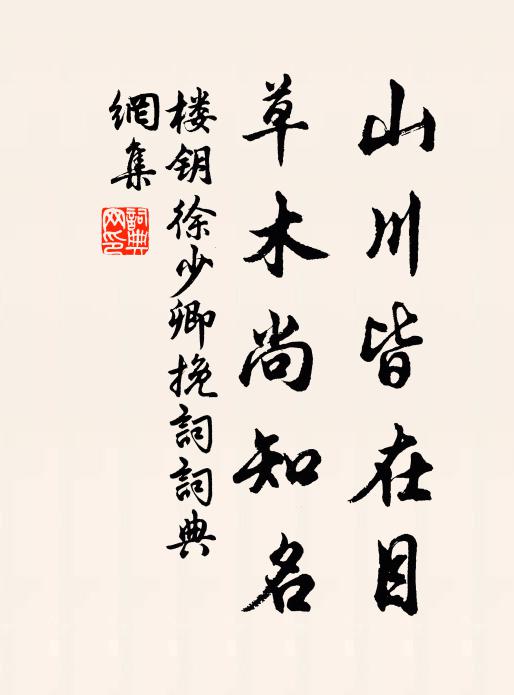 山川皆在目
草木尚知名
楼钥徐少卿挽詞詞典
網集
詞典
网印